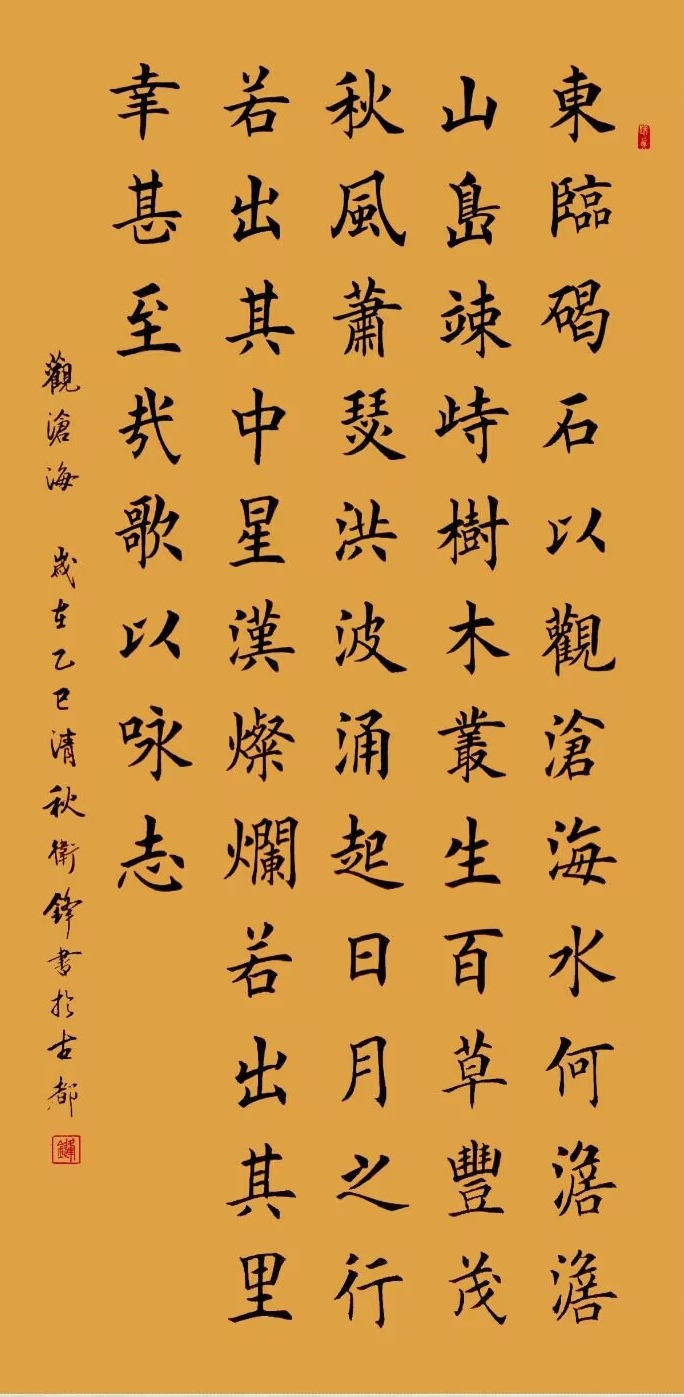 東臨碣石以觀滄海水何澹澹
山島竦峙樹木叢生百草豐茂
秋風蕭瑟洪波涌起日月之行
若出其中星漢燦爛若出其里
幸甚至哉歌以咏志
觀滄海 歲在乙巳清秋衛鋒書於古都